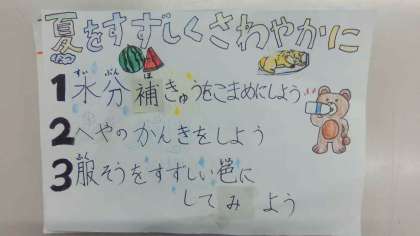 夏をすずしくさわやかに
1 水分補きゅうをこまめにしよう
2 へやのかんきをしよう
3 服そうをすずしい色に
してみよう